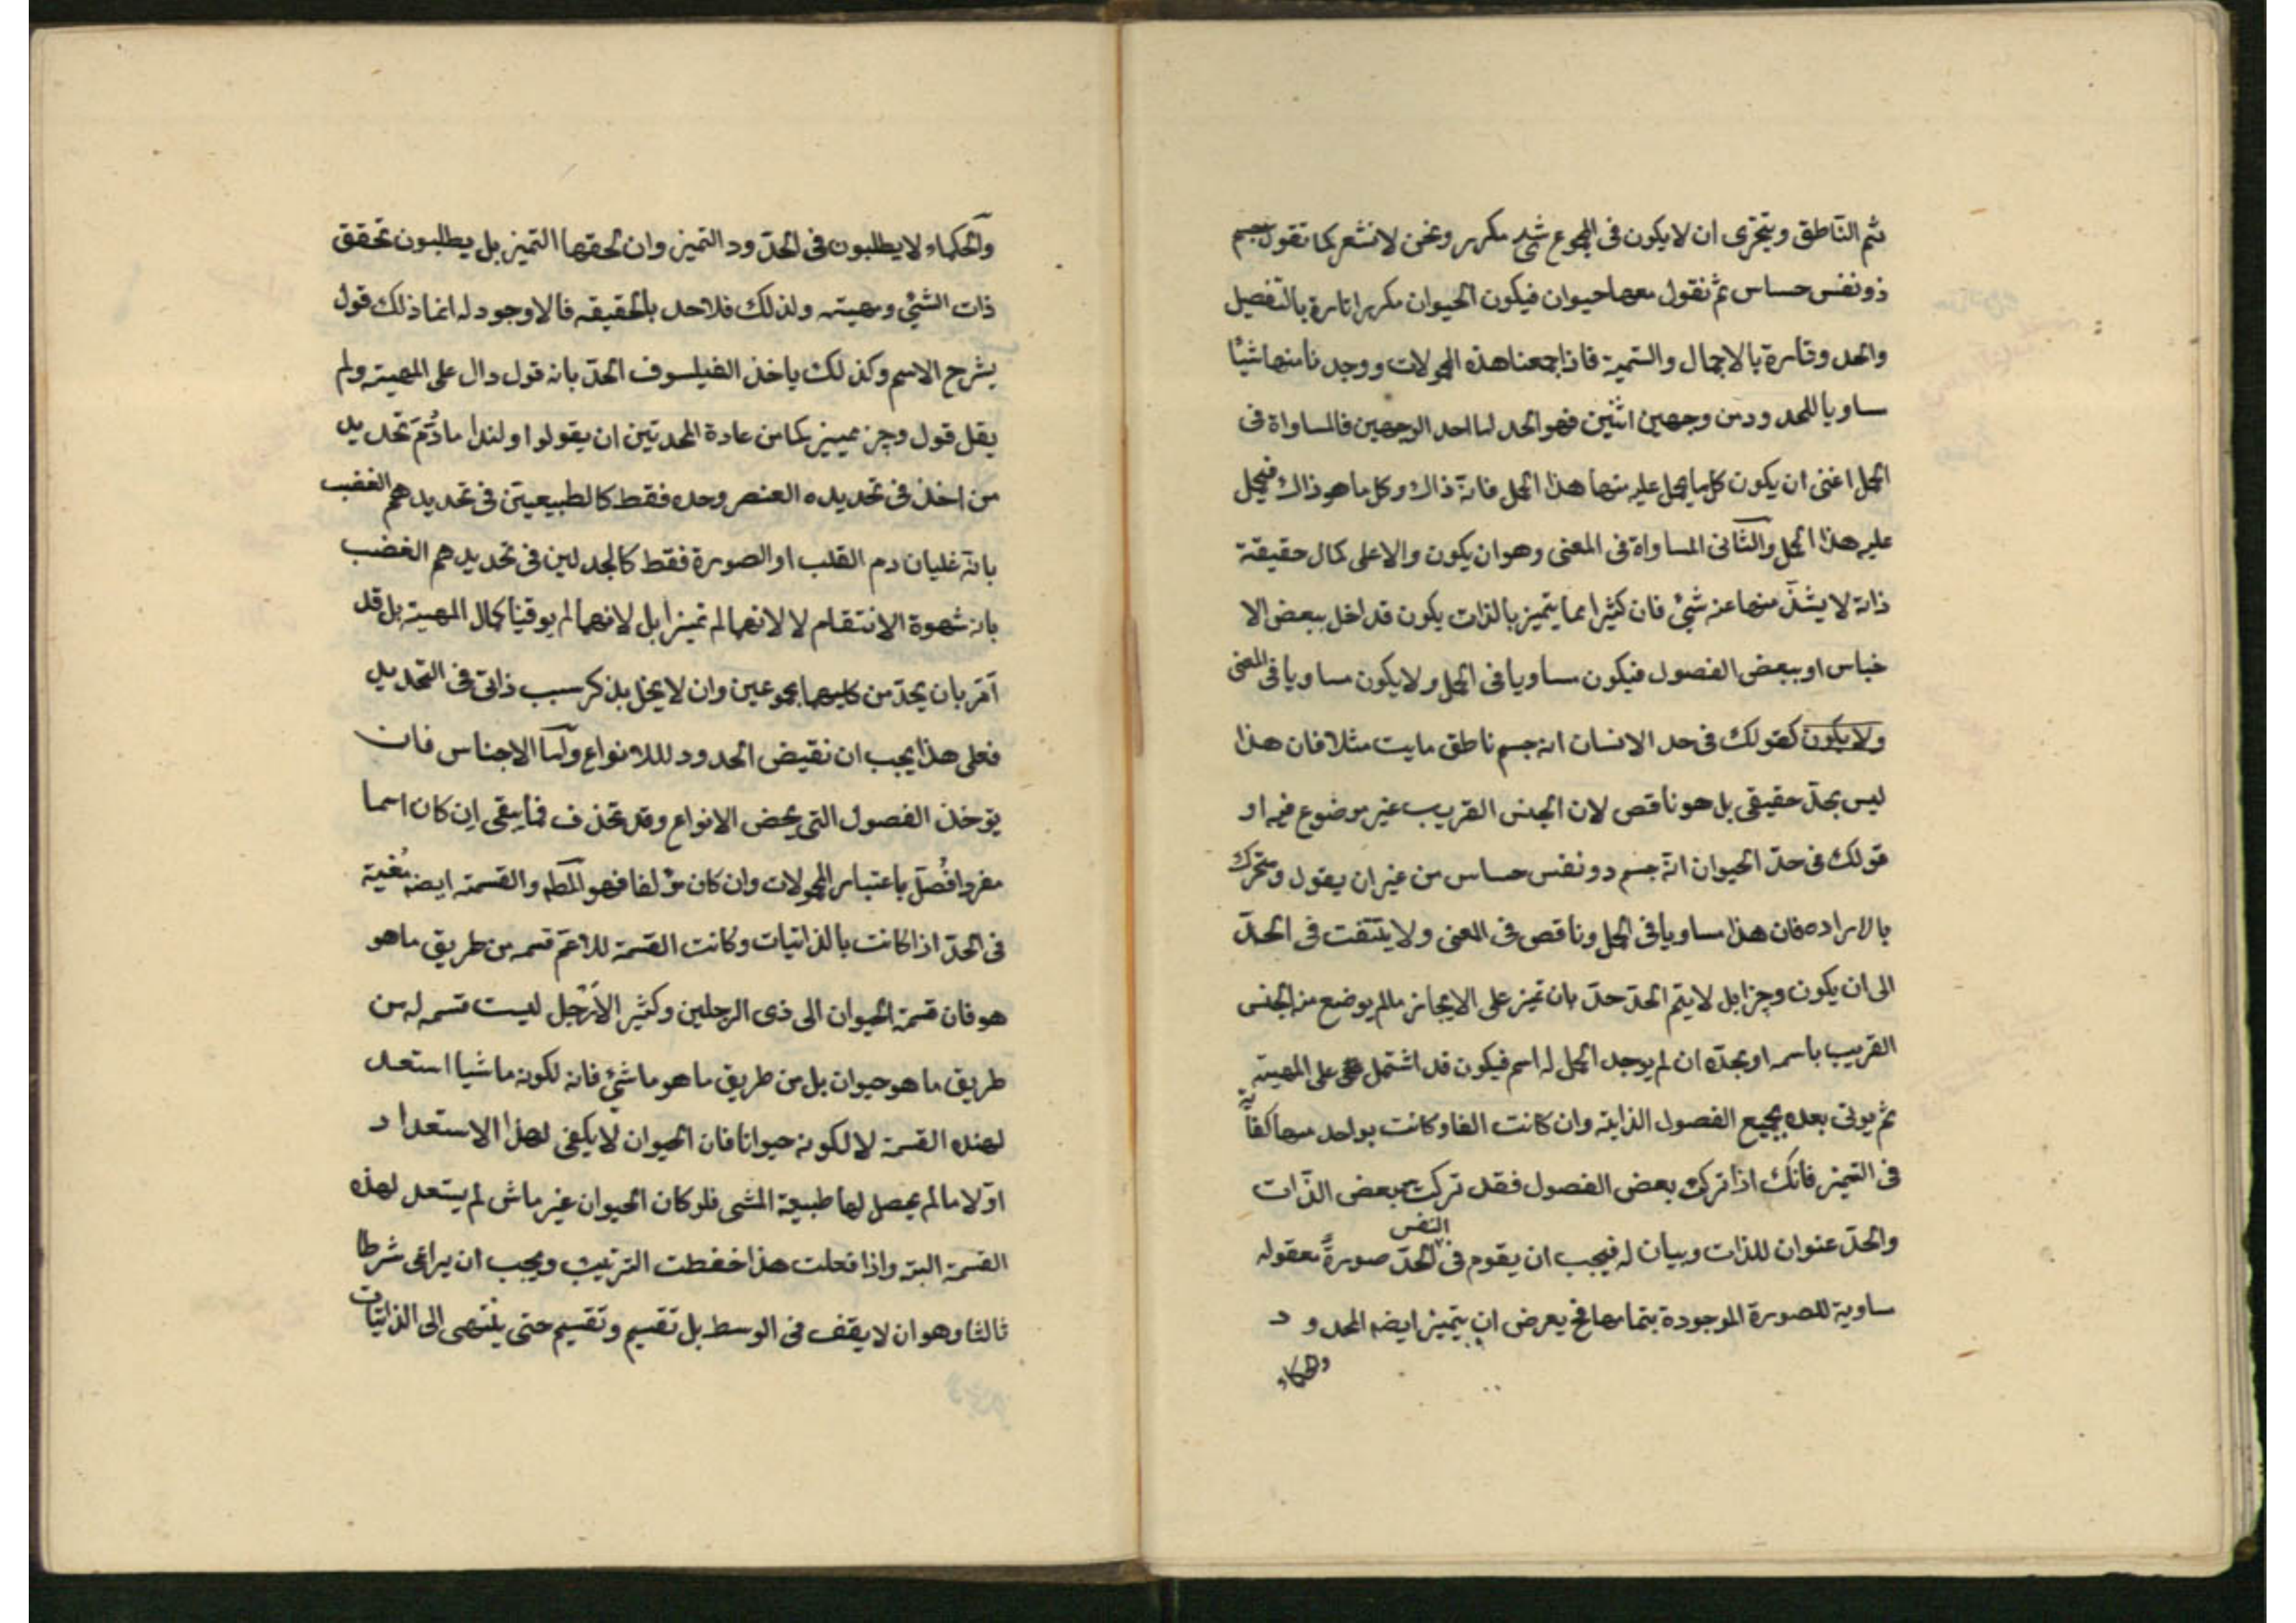 ثم الناطق ويتحرى ان لا يكون فى المجموع شئ مكرر ونحن لا نشعر كما تقول جسم
ذو نفس حساس ثم نقول معها حيوان فيكون الحيوان مكررا تارة بالتفصيل
والحد وتارة بالاجمال والتسمية فاذا جمعنا هذه المحمولات ووجدنا منها شيئا
مساويا للمحدود من وجهين اثنين فهو الحد اما احد الوجهين فالمساواة فى
الحمل اعنى ان يكون كل ما يحمل عليه منها هذا الحمل فانه ذاك وكل ما هو ذاك فيحمل
عليه هذا الحمل والثانى المساواة فى المعنى وهو ان يكون والا على كمال حقيقة
ذاته لا يشذ منها عنه شئ فان كثيرا مما يتميز بالذات يكون قد اخل ببعض الا
جناس او ببعض الفصول فيكون مساويا فى الحمل ولا يكون مساويا فى المعنى
ولا يكون كقولك فى حد الانسان انه جسم ناطق مايت مثلا فان هذا
ليس بحد حقيقى بل هو ناقص لان الجنس القريب غير موضوع فيه او
قولك فى حد الحيوان انه جسم دو نفس حساس من غير ان يقول ومتحرك
بالاراده فان هذا مساويا فى الحمل وناقص فى المعنى ولا يلتفت فى الحد
الى ان يكون وجزا بل لا يتم الحد حد بان تميز على الايجاز ما لم يوضع منه الجنس
القريب باسمه او بحده ان لم يوجد الحمل له اسم فيكون قد اشتمل على المهية
ثم يوتى بعده بجميع الفصول الذاتية وان كانت الفا وكانت بواحد منها كفاية
فى التميز فانك اذا تركت بعض الفصول فقد تركت بعض الذات
والحد عنوان للذات وبيان له فيجب ان يقوم فى الحد النفس صورة معقوله
مساوية للصورة الموجودة بتمامها فح يعرض ان يتميز ايضه المحدود
والحكماء
والحكماء لا يطلبون فى الحدود التميز وان لحقها التميز بل يطلبون تحقق
ذات الشئ ومهيته ولذلك فلا حد بالحقيقه فالا وجود له انما ذلك قول
يشرح الاسم وكذلك ياخذ الفيلسوف الحد بانه قول دال على المهية ولم
يقل قول وجز مميز كما من عادة المحدثين ان يقولوا ولندا ما ذم تحديد
من اخذ فى تحديده العنصر وحده فقط كالطبيعيين فى تحديدهم الغضب
بانه غليان دم القلب او الصورة فقط كالجدلين فى تحديدهم الغضب
بانه شهوة الانتقام لا لانهما لم تميزا بل لانهما لم يوفيا كمال المهية بل قد
آمر بان يحد من كليهما مجموعين وان لا يخل بذكر سبب ذاتى فى التحديد
فعلى هذا يجب ان نقيض الحدود للانواع وآما الاجناس فان
يؤخذ الفصول التى يخص الانواع وقد تحذف فما يبقى ان كان اسما
مفردا فُصل باعتبار المحمولات وان كان مؤلفا فهو المط والقسمة ايضه مغنية
فى الحد اذا كانت بالذاتيات وكانت القسمة للاعم قسمه من طريق ما هو
هو فان قسمة الحيوان الى ذى الرجلين وكثير الارجل ليست قسمه له من
طريق ما هو حيوان بل من طريق ما هو ماشئ فانه لكونه ماشيا استعد
لهذه القسمة لا لكونه حيوانا فان الحيوان لا يكفى لهذا الاستعداد
اولا ما لم يحصل لها طبيعة المشى فلو كان الحيوان غير ماش لم يستعد لهذه
القسمة البتة واذا فعلت هذا حفظت الترتيب ويجب ان يراعى شرطا
ثالثا وهو ان لا يقف فى الوسط بل تقسيم وتقسيم حتى ينتهى الى الذاتيات